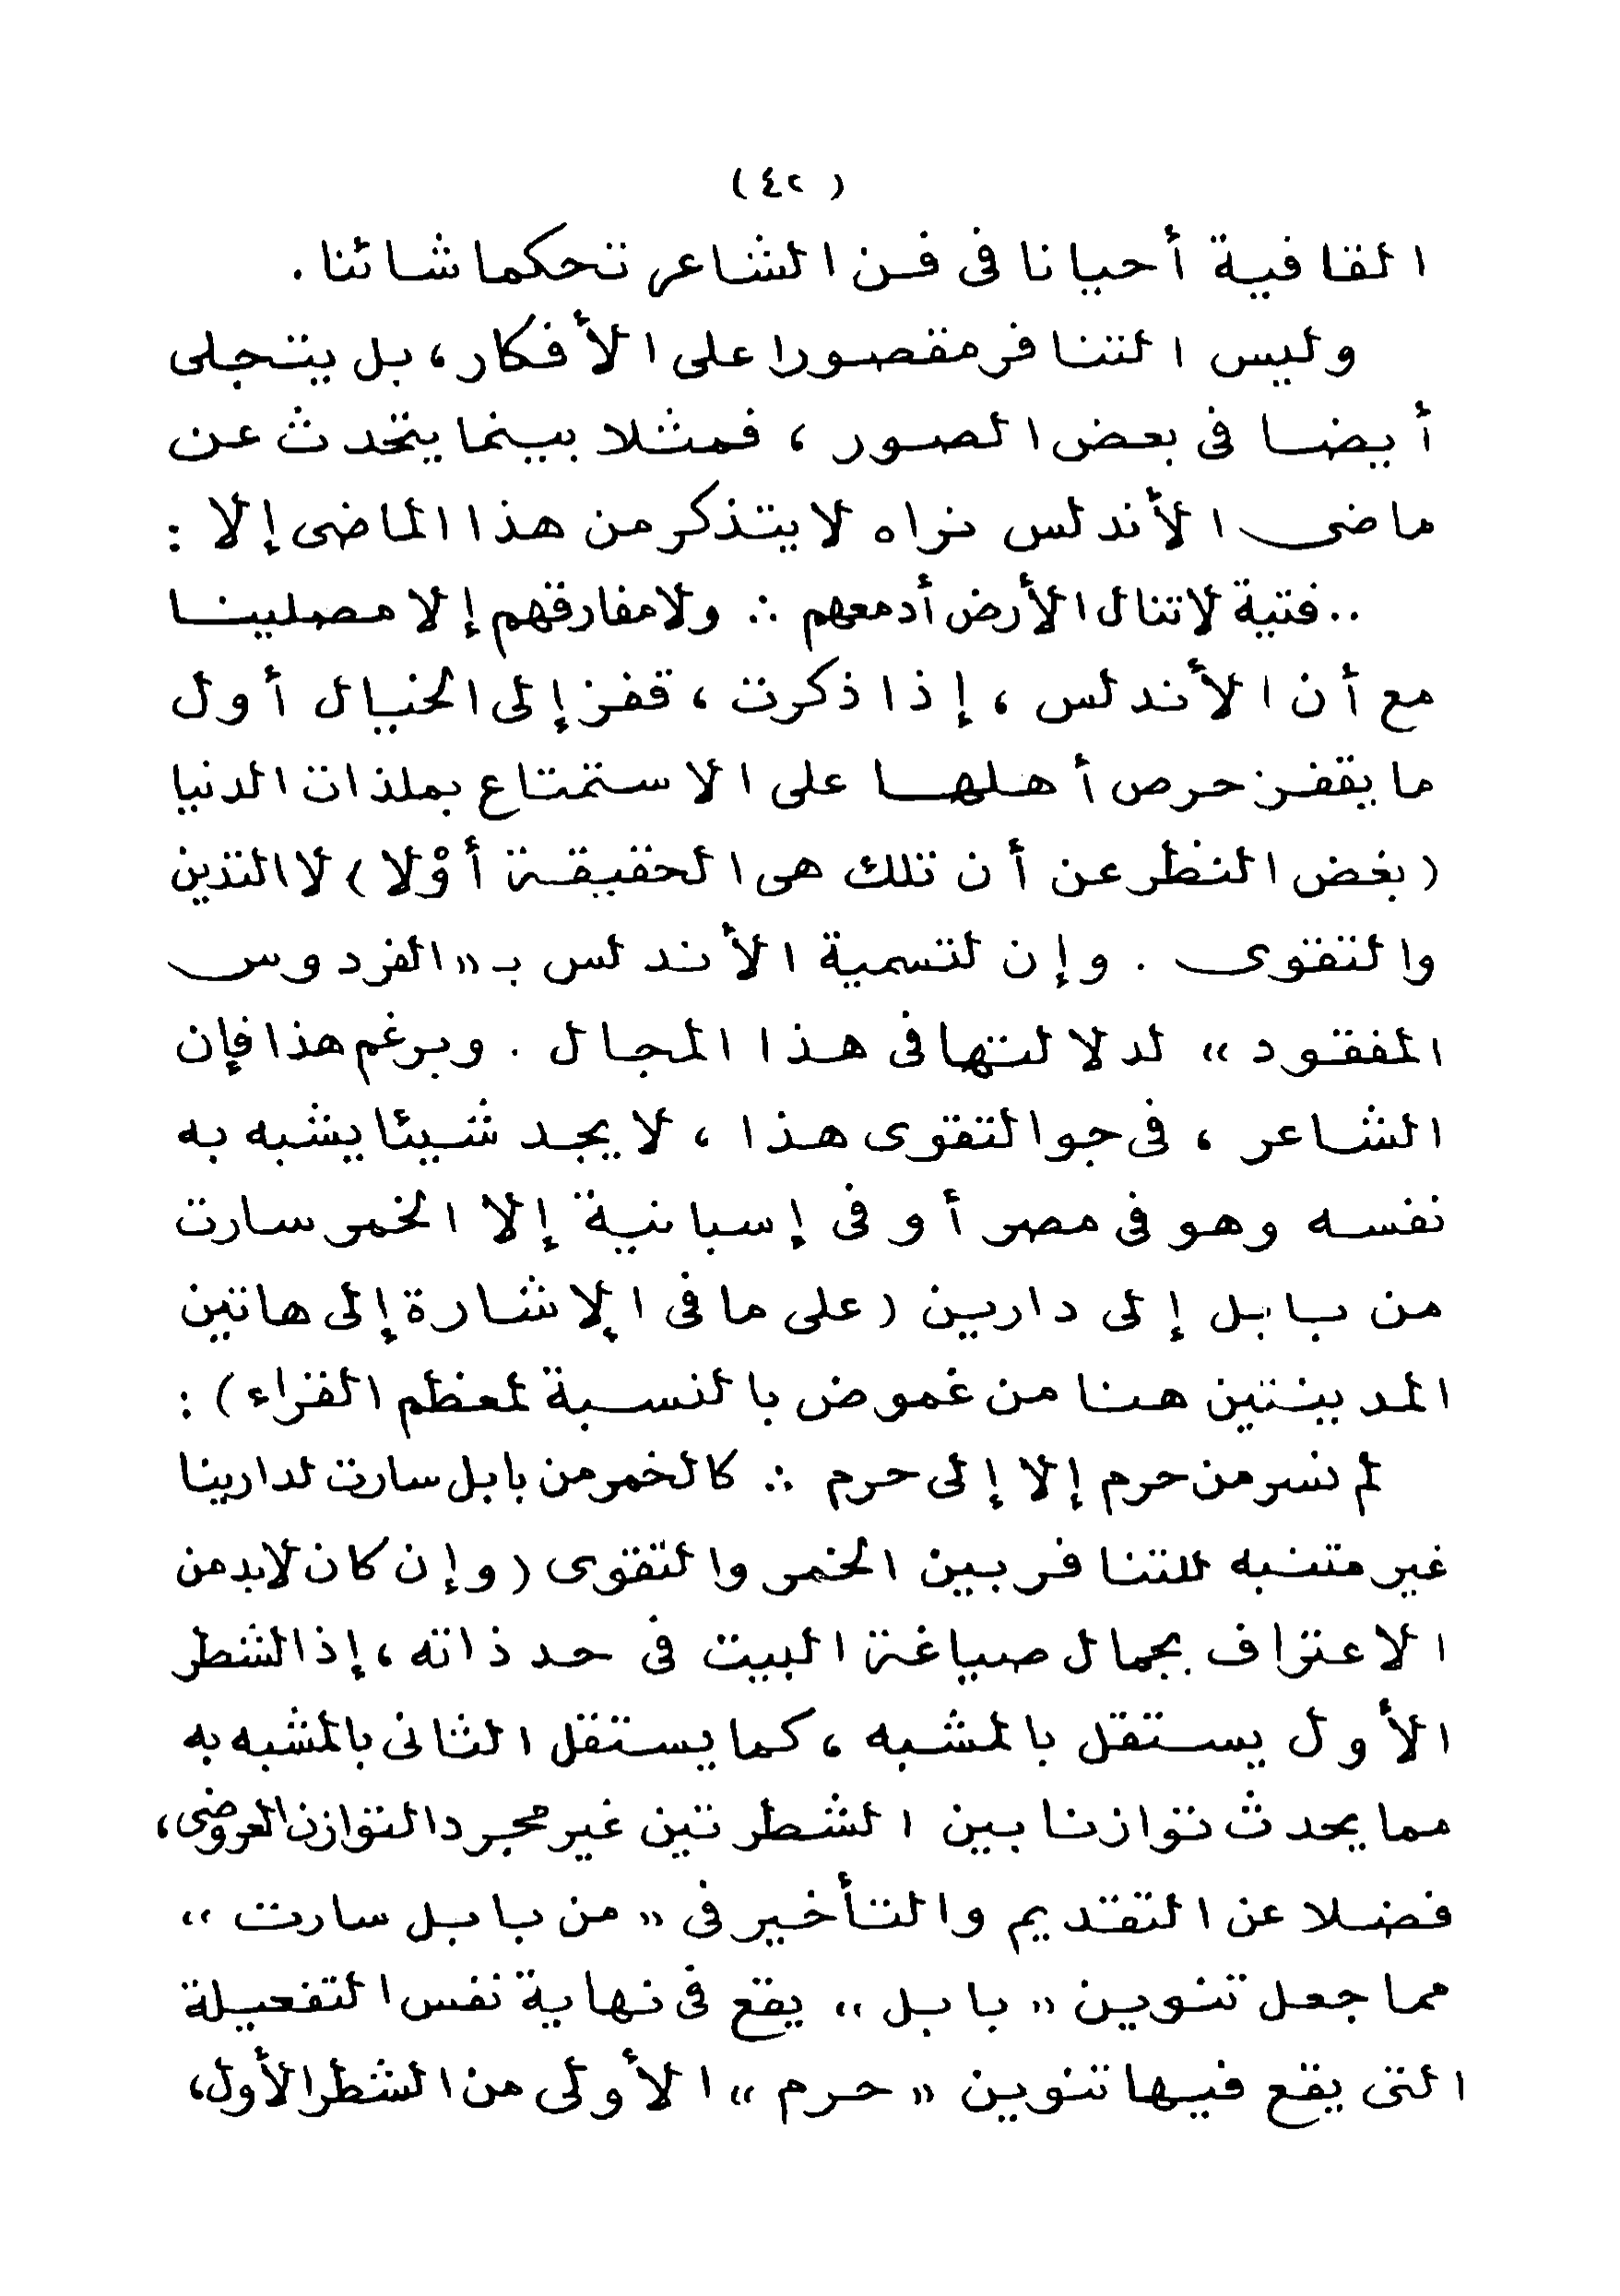 ( ٤٢ )
القافية أحيانا فى فن الشاعر تحكما شائنا .
وليس التنافر مقصورا على الأفكار، بل يتجلى
أيضا فى بعض الصور ، فمثلا بينما يتحدث عن
ماضى الأندلس نراه لا يتذكر من هذا الماضى إلا :
.. فتية لاتنال الأرض أدمعهم ∴ ولا مفارقهم إلا مصلينا
مع أن الأندلس ، إذا ذكرت ، قفز إلى الخيال أول
ما يقفز حرص أهلها على الاستمتاع بملذات الدنيا
( بغض النظر عن أن تلك هى الحقيقة أوْلا ) لا التدين
والتقوى . وإن لتسمية الأندلس بـ «الفردوس
المفقود » لدلالتها فى هذا المجال . وبرغم هذا فإن
الشاعر ، فى جو التقوى هذا ، لا يجد شيئا يشبه به
نفسه وهو فى مصر أو فى إسبانية إلا الخمر سارت
من بابل إلى دارين ( على ما فى الإشارة إلى هاتين
المدينتين هنا من غموض بالنسبة لمعظم القراء ) :
لم نسر من حرم إلا إلى حرم ∴ كالخمر من بابل سارت لدارينا
غير متنبه للتنافر بين الخمر والتقوى ( وإن كان لابد من
الاعتراف بجمال صياغة البيت فى حد ذاته ، إذ الشطر
الأول يستقل بالمشبه ، كما يستقل الثانى بالمشبه به
مما يحدث توازنا بين الشطرتين غير مجرد التوازن العروضى ،
فضلا عن التقديم والتأخير فى « من بابل سارت »
مما جعل تنوين « بابل » يقع فى نهاية نفس التفعيلة
التى يقع فيها تنوين « حرم » الأولى من الشطر الأول،